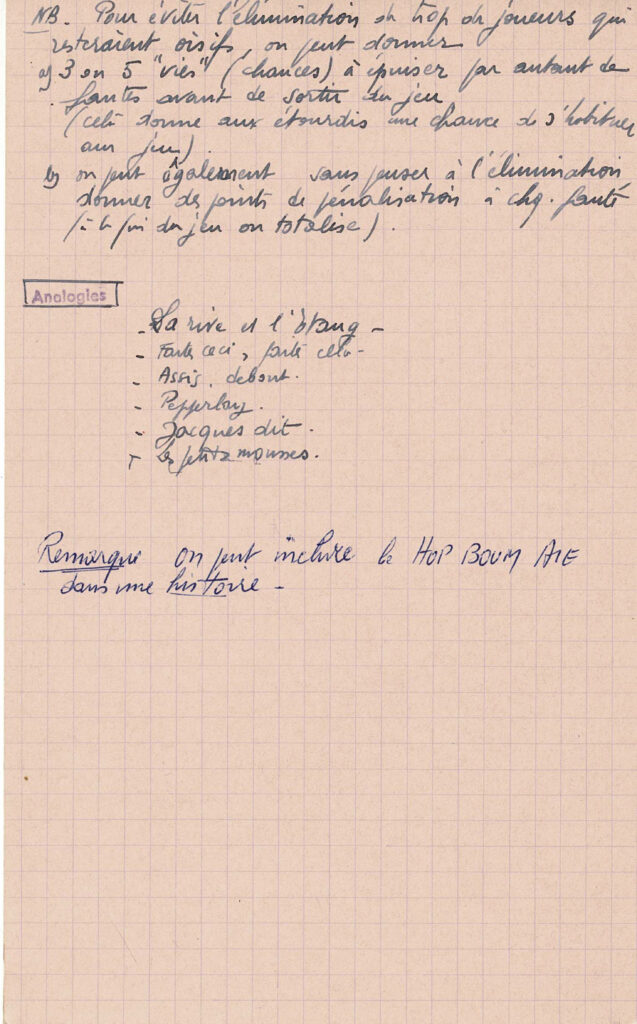 NB. Pour éviter l'élimination de trop de joueurs qui
resteraient oisifs, on peut donner
a) 3 ou 5 "vies" (chances) à épuiser par autant de
fautes avant de sortir du jeu
(celà donne aux étourdis une chance de s'habituer
aux jeu).
b) on peut également sans penser à l'élimination
donner des points de pénalisation à chq. faute
(à la fin du jeu on totalise).
Analogies
- La rive et l'étang -
- Faite ceci, faite cela -
- Assis, debout.
-
- Jacques dit.
- Les petits mousses.
Remarque on peut inclure le HOP BOUM AIE
dans une histoire -